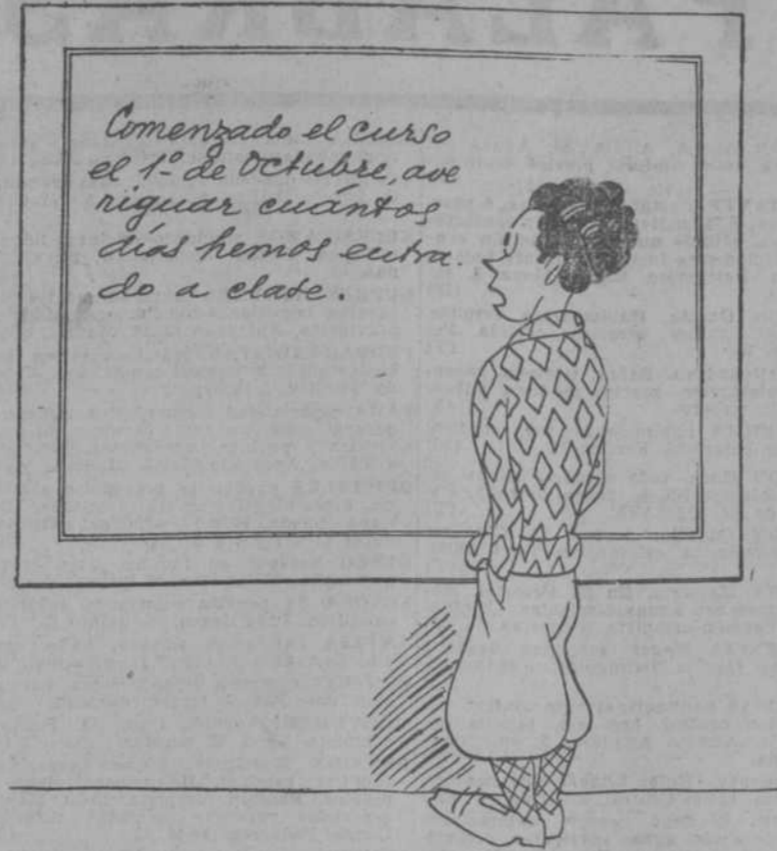 Comenzado el curso
el 1º de Octubre, ave
riguar cuántos
días hemos entra
do a clase.